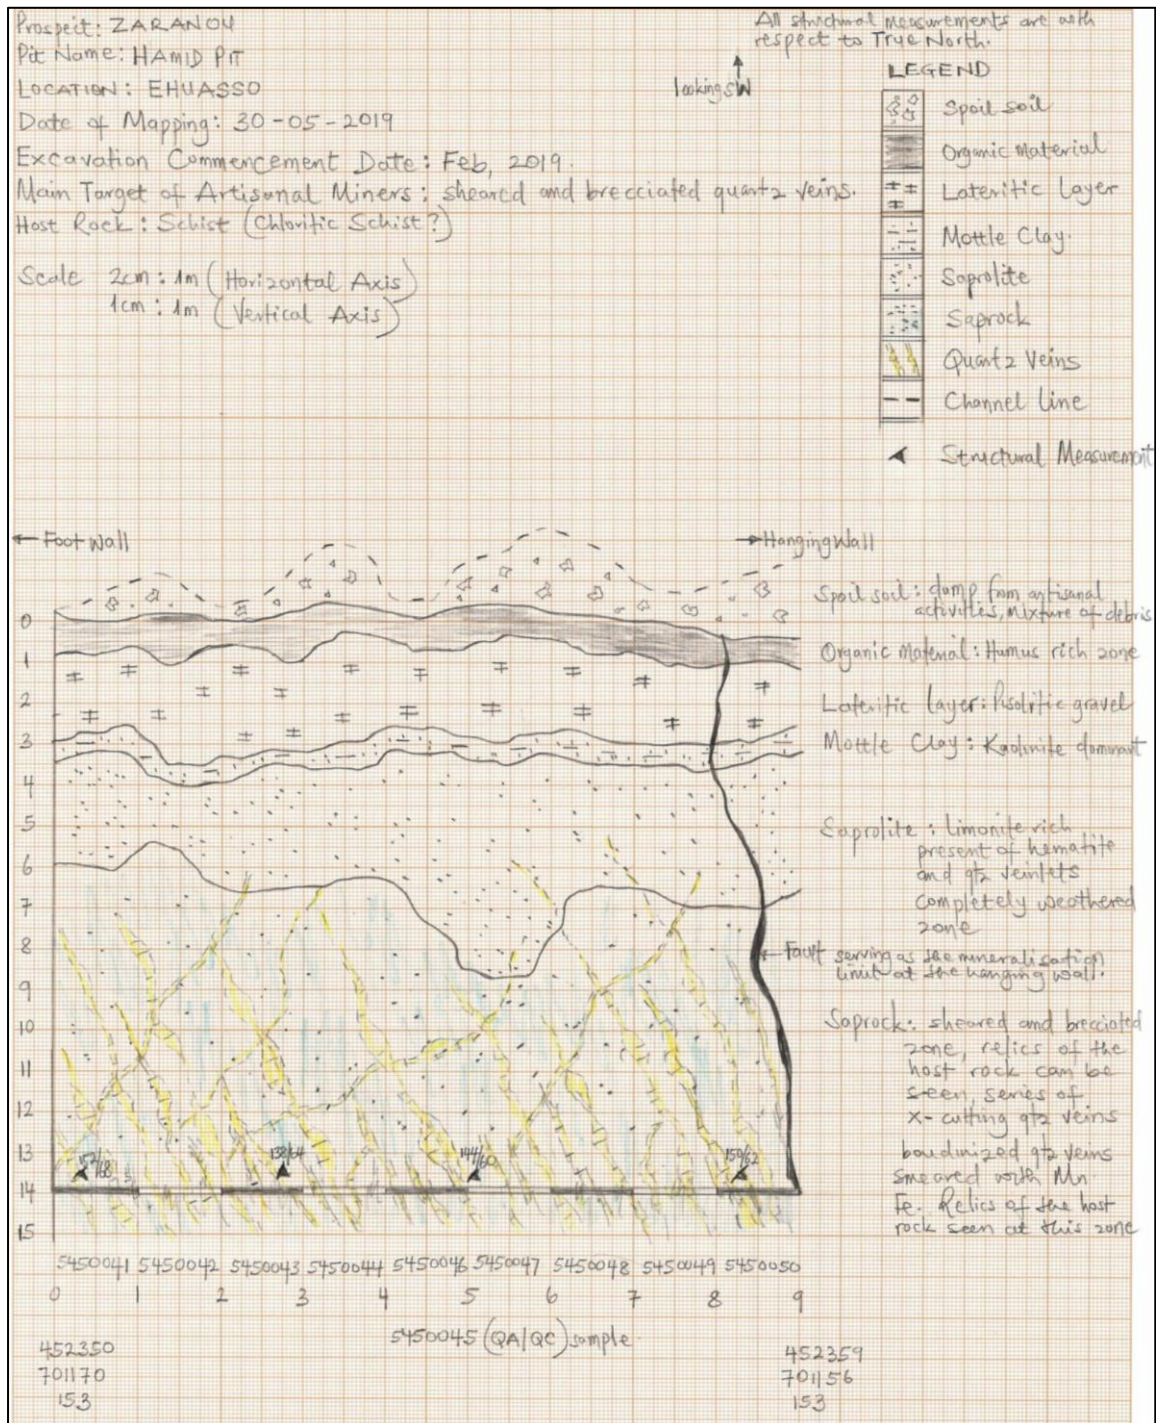 Prospect: ZARANOU
Pit Name: HAMID PIT
LOCATION: EHUASSO
Date of Mapping: 30-05-2019
Excavation Commencement Date: Feb, 2019.
Main Target of Artisanal Miners: sheared and brecciated quartz veins.
Host Rock: Schist (Chloritic Schist?)
Scale 2cm : 1m (Horizontal Axis)
1cm : 1m (Vertical Axis)
All structural measurements are with
respect to True North.
looking SW
LEGEND
Spoil soil
Organic Material
Lateritic Layer
Mottle Clay.
Saprolite
Saprock
Quartz Veins
Channel line
Structural Measurement
Foot Wall
Hanging Wall
Spoil soil: dump from artisanal
activities, mixture of debris
Organic Material: Humus rich zone
Lateritic layer: Pisolitic gravel
Mottle Clay: Kaolinite dominant
Saprolite: Limonite rich
present of hematite
and qtz veinlets
completely weathered
zone
Fault serving as the mineralisation
limit at the hanging wall.
Saprock: sheared and brecciated
zone, relics of the
host rock can be
seen, series of
x-cutting qtz veins
boudinized qtz veins
smeared with Mn.
Fe. Relics of the host
rock seen at this zone
0
1
2
3
4
5
6
7
8
9
10
11
12
13
14
15
138/64
144/60
150/62
5450041 5450042 5450043 5450044 5450046 5450047 5450048 5450049 5450050
0 1 2 3 4 5 6 7 8 9
5450045 (QA/QC) sample.
452350
701170
153
452359
701156
153